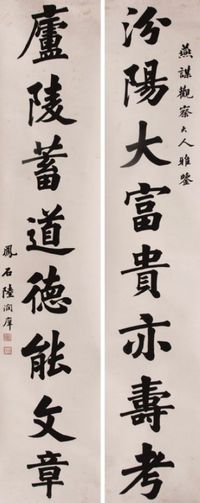 燕謀觀察大人雅鑒
汾陽大富貴亦壽考
廬陵蓄道德能文章
鳳石陸潤庠